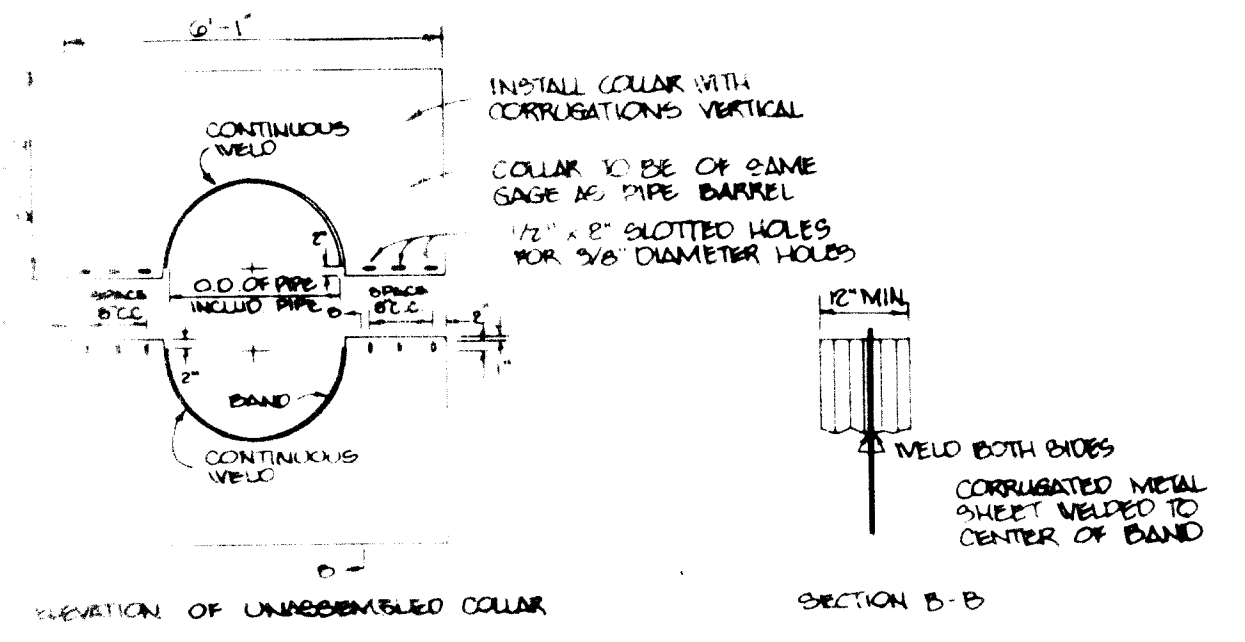 6'-1"
INSTALL COLLAR WITH
CORRUGATIONS VERTICAL
CONTINUOUS
WELD
COLLAR TO BE OF SAME
GAGE AS PIPE BARREL
1/2" x 2" SLOTTED HOLES
FOR 3/8" DIAMETER HOLES
2"
O.D. OF PIPE
INCLUD PIPE
SPACE
8" C.C.
SPACE
8" C.C.
B
2"
1"
2"
BAND
CONTINUOUS
WELD
B
ELEVATION OF UNASSEMBLED COLLAR
12" MIN.
WELD BOTH SIDES
CORRUGATED METAL
SHEET WELDED TO
CENTER OF BAND
SECTION B-B